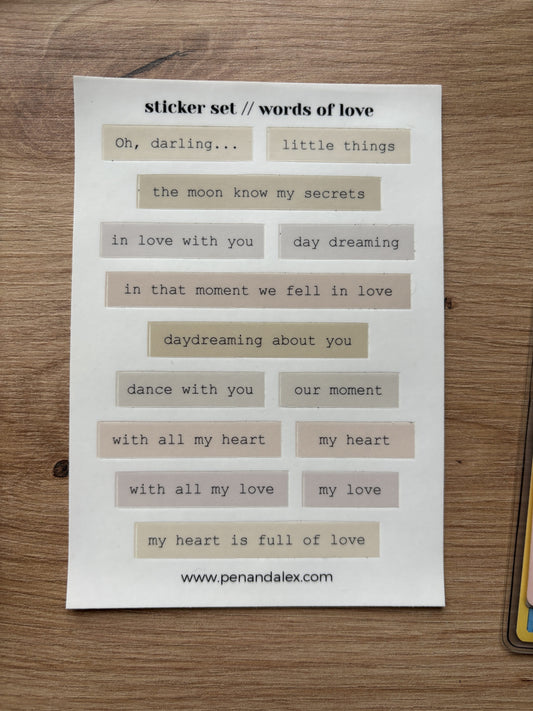 sticker set // words of love
Oh, darling... little things
the moon know my secrets
in love with you day dreaming
in that moment we fell in love
daydreaming about you
dance with you our moment
with all my heart my heart
with all my love my love
my heart is full of love
www.penandalex.com